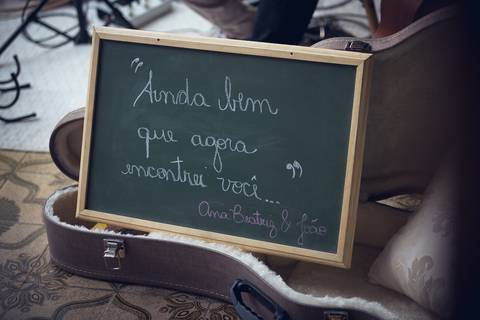 "Ainda bem
que agora
encontrei você..."
Ana Beatriz & João